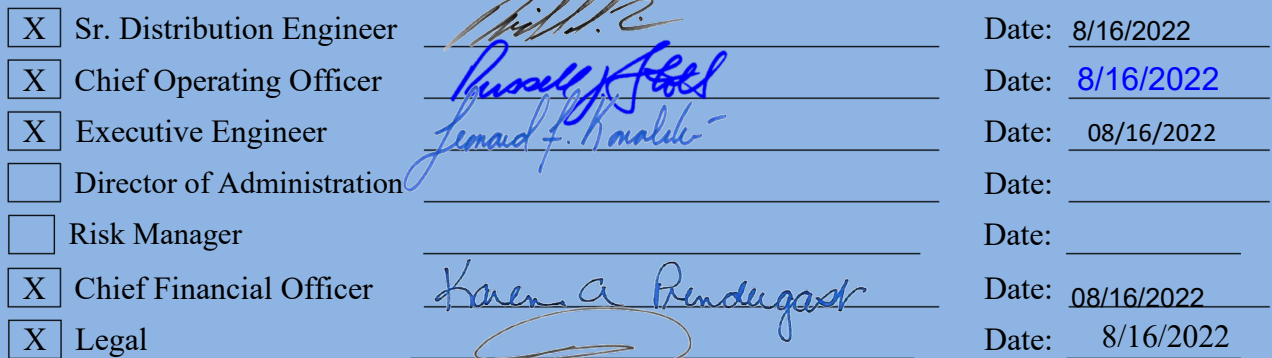 X Sr. Distribution Engineer Date: 8/16/2022
X Chief Operating Officer Russell J Date: 8/16/2022
X Executive Engineer Date: 08/16/2022
Director of Administration Date:
Risk Manager Date:
X Chief Financial Officer Karen A Prendergast Date: 08/16/2022
X Legal Date: 8/16/2022